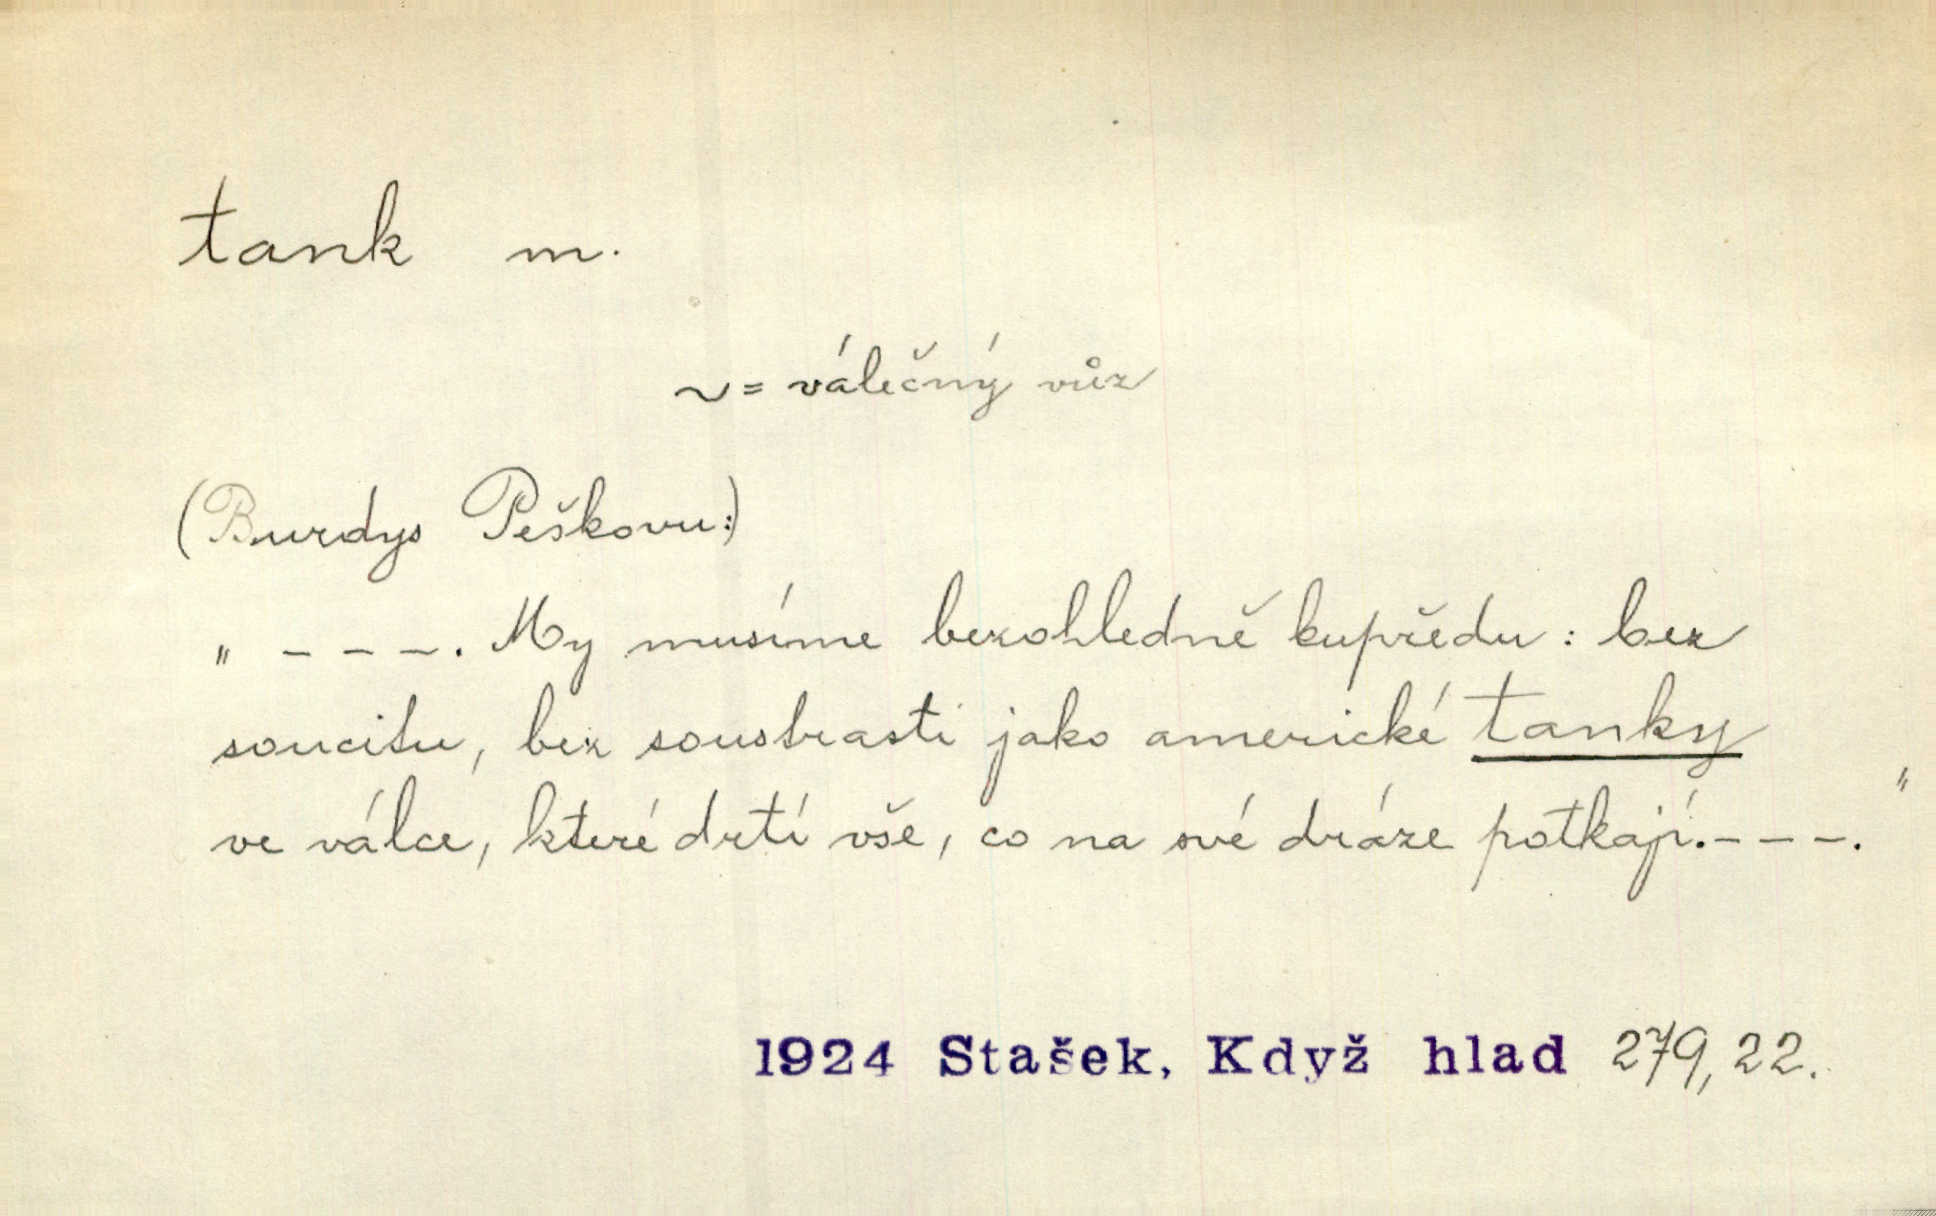 tank m.
~ = válečný vůz
(Burdys Peškovu:)
„ – – –. My musíme bezohledně kupředu: bez
soucitu, bez soustrasti jako americké tanky
ve válce, které drtí vše, co na své dráze potkají. – – –."
1924 Stašek, Když hlad 279,22.